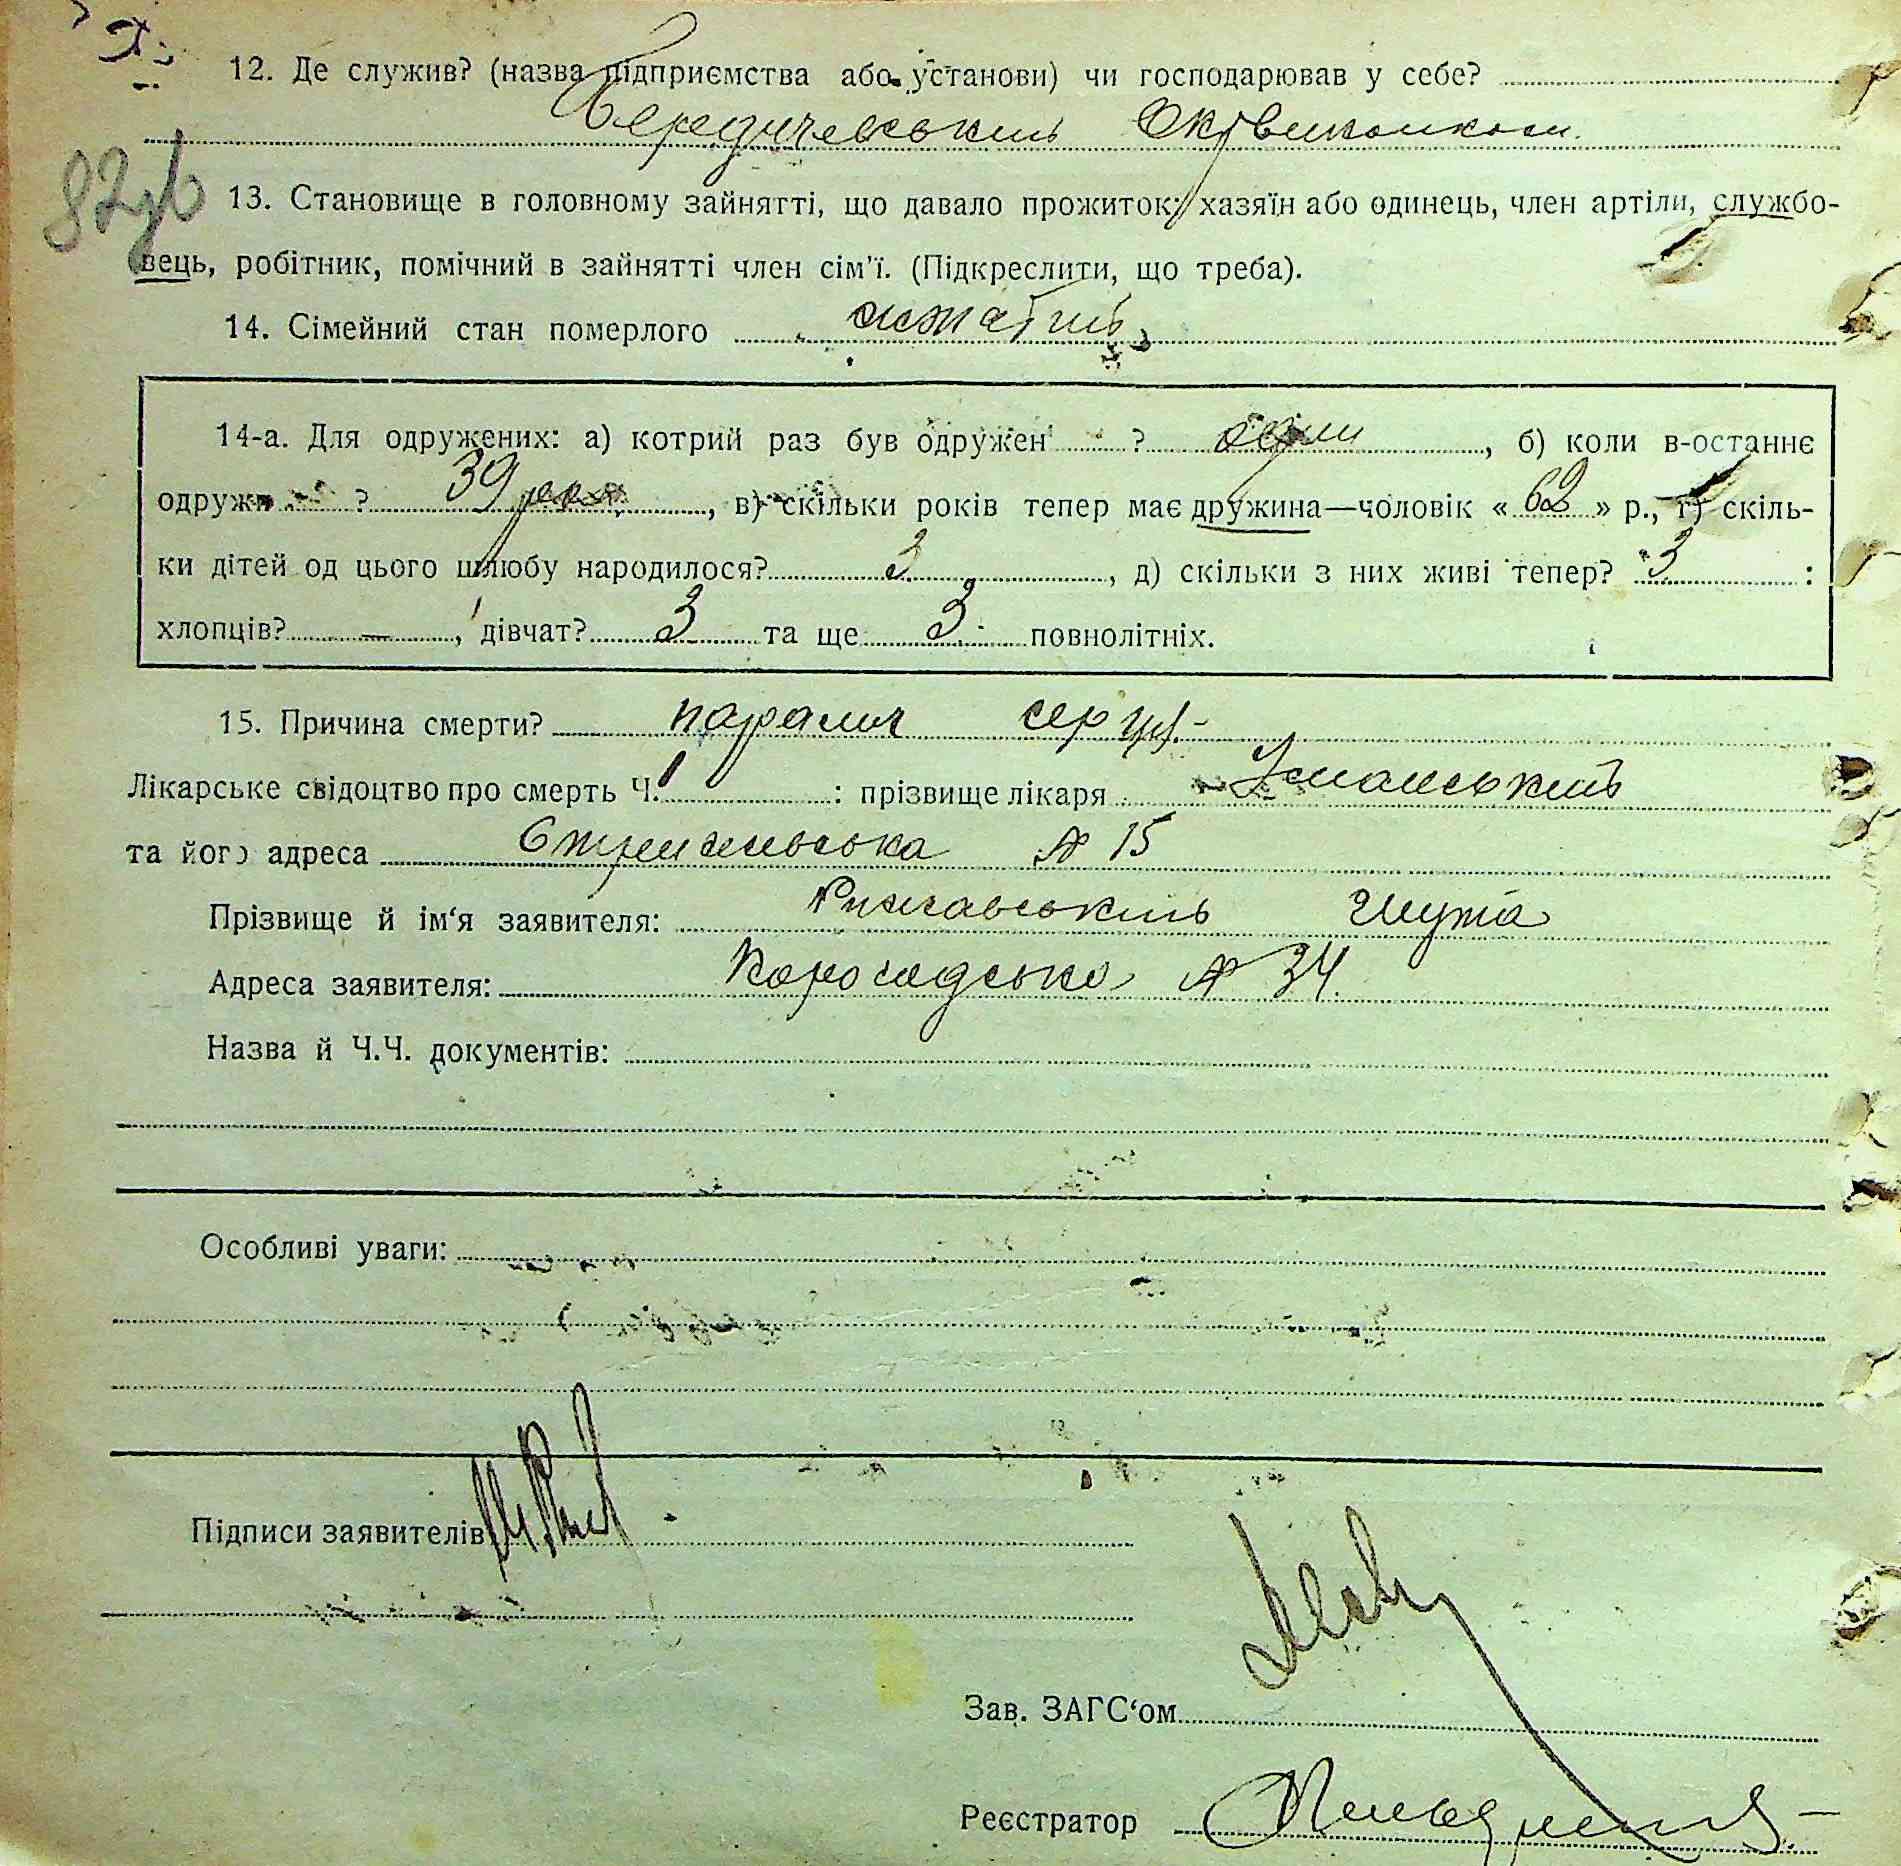 12. Де служив? (назва підприємства або установи) чи господарював у себе?
Бердичевський Окрвиконком.
13. Становище в головному зайнятті, що давало прожиток: хазяїн або одинець, член артіли, службо-
вець, робітник, помічний в зайнятті член сім'ї. (Підкреслити, що треба).
14. Сімейний стан померлого жжатий
14-а. Для одружених: а) котрий раз був одружен ? один, б) коли в-останнє
одружи ? 39 рок, в) скільки років тепер має дружина—чоловік «62» р., г) скіль-
ки дітей од цього шлюбу народилося? 3, д) скільки з них живі тепер? 3 :
хлопців? —, дівчат? 3 та ще 3 повнолітніх.
15. Причина смерти? параліч серця
Лікарське свідоцтво про смерть Ч. : прізвище лікаря Уманський
та його адреса № 15
Прізвище й ім'я заявителя: Рижавський Шута
Адреса заявителя: № 34.
Назва й Ч.Ч. документів:
Особливі уваги:
Підписи заявителів
Зав. ЗАГС'ом
Реєстратор